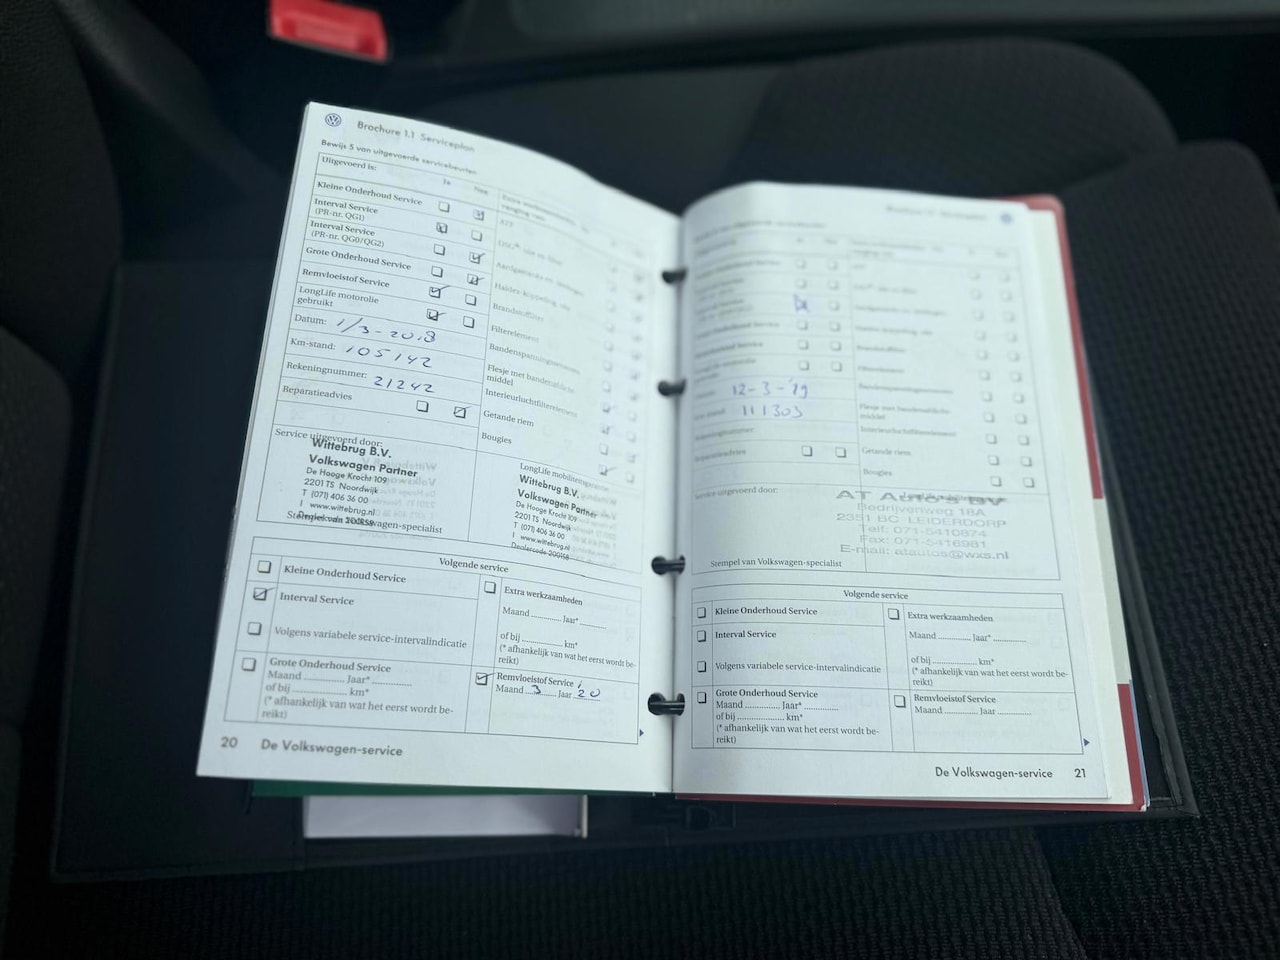 Brochure 1.1 Serviceplan
Bewijs 5 van uitgevoerde servicebeurten
Uitgevoerd is:
Ja Nee
Kleine Onderhoud Service
Interval Service
(PR-nr. QG1)
Interval Service
(PR-nr. QG0/QG2)
Grote Onderhoud Service
Remvloeistof Service
LongLife motorolie
gebruikt
Datum: 1/3-2018
Km-stand: 105142
Rekeningnummer: 21242
Reparatieadvies
Haldex-koppeling, olie
Brandstoffilter
Filterelement
Bandenspanningswaarden
Flesje met bandenafdicht-
middel
Interieurluchtfilterelement
Getande riem
Bougies
LongLife mobiliteitsgarantie
Service uitgevoerd door:
Wittebrug B.V.
Volkswagen Partner
De Hooge Krocht 109
2201 TS Noordwijk
T (071) 406 36 00
I www.wittebrug.nl
Dealercode 200158
Stempel van Volkswagen-specialist
Wittebrug B.V.
Volkswagen Partner
De Hooge Krocht 109
2201 TS Noordwijk
T (071) 406 36 00
I www.wittebrug.nl
Dealercode 200158
Volgende service
Kleine Onderhoud Service
Interval Service
Volgens variabele service-intervalindicatie
Grote Onderhoud Service
Maand ............ Jaar* ............
of bij ............ km*
(* afhankelijk van wat het eerst wordt be-
reikt)
Extra werkzaamheden
Maand ............ Jaar* ............
of bij ............ km*
(* afhankelijk van wat het eerst wordt be-
reikt)
Remvloeistof Service
Maand 3 Jaar '20
20 De Volkswagen-service
12-3-'19
111303
Reparatieadvies
Brandstoffilter
Filterelement
Flesje met bandenafdicht-
middel
Interieurluchtfilterelement
Getande riem
Bougies
Service uitgevoerd door:
AT Autos BV
Bedrijvenweg 18A
2351 BC LEIDERDORP
Telf: 071-5410674
Fax: 071-5416981
E-mail: atautos@wxs.nl
Stempel van Volkswagen-specialist
Volgende service
Kleine Onderhoud Service
Interval Service
Volgens variabele service-intervalindicatie
Grote Onderhoud Service
Maand ............ Jaar* ............
of bij ............ km*
(* afhankelijk van wat het eerst wordt be-
reikt)
Extra werkzaamheden
Maand ............ Jaar* ............
of bij ............ km*
(* afhankelijk van wat het eerst wordt be-
reikt)
Remvloeistof Service
Maand ............ Jaar ............
De Volkswagen-service 21